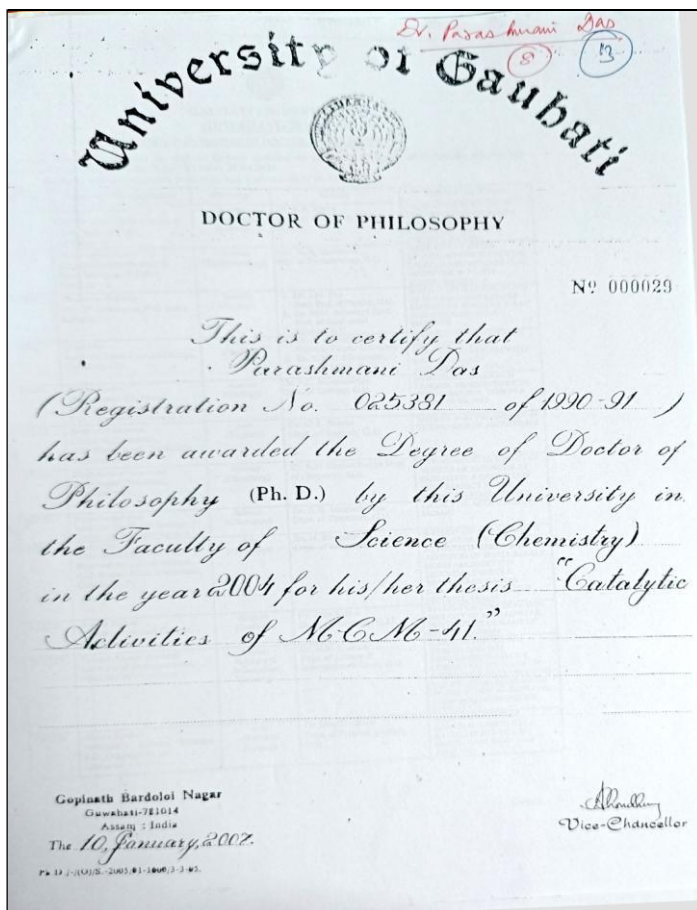 Dr. Parashmani Das
8 13
University of Gauhati
DOCTOR OF PHILOSOPHY
Nº 000029
This is to certify that
Parashmani Das
(Registration No. 025381 of 1990-91)
has been awarded the Degree of Doctor of
Philosophy (Ph. D.) by this University in
the Faculty of Science (Chemistry)
in the year 2004 for his/her thesis "Catalytic
Activities of M-C-M-41."
Gopinath Bardoloi Nagar
Guwahati-781014
Assam : India
The 10, January, 2007.
Vice-Chancellor